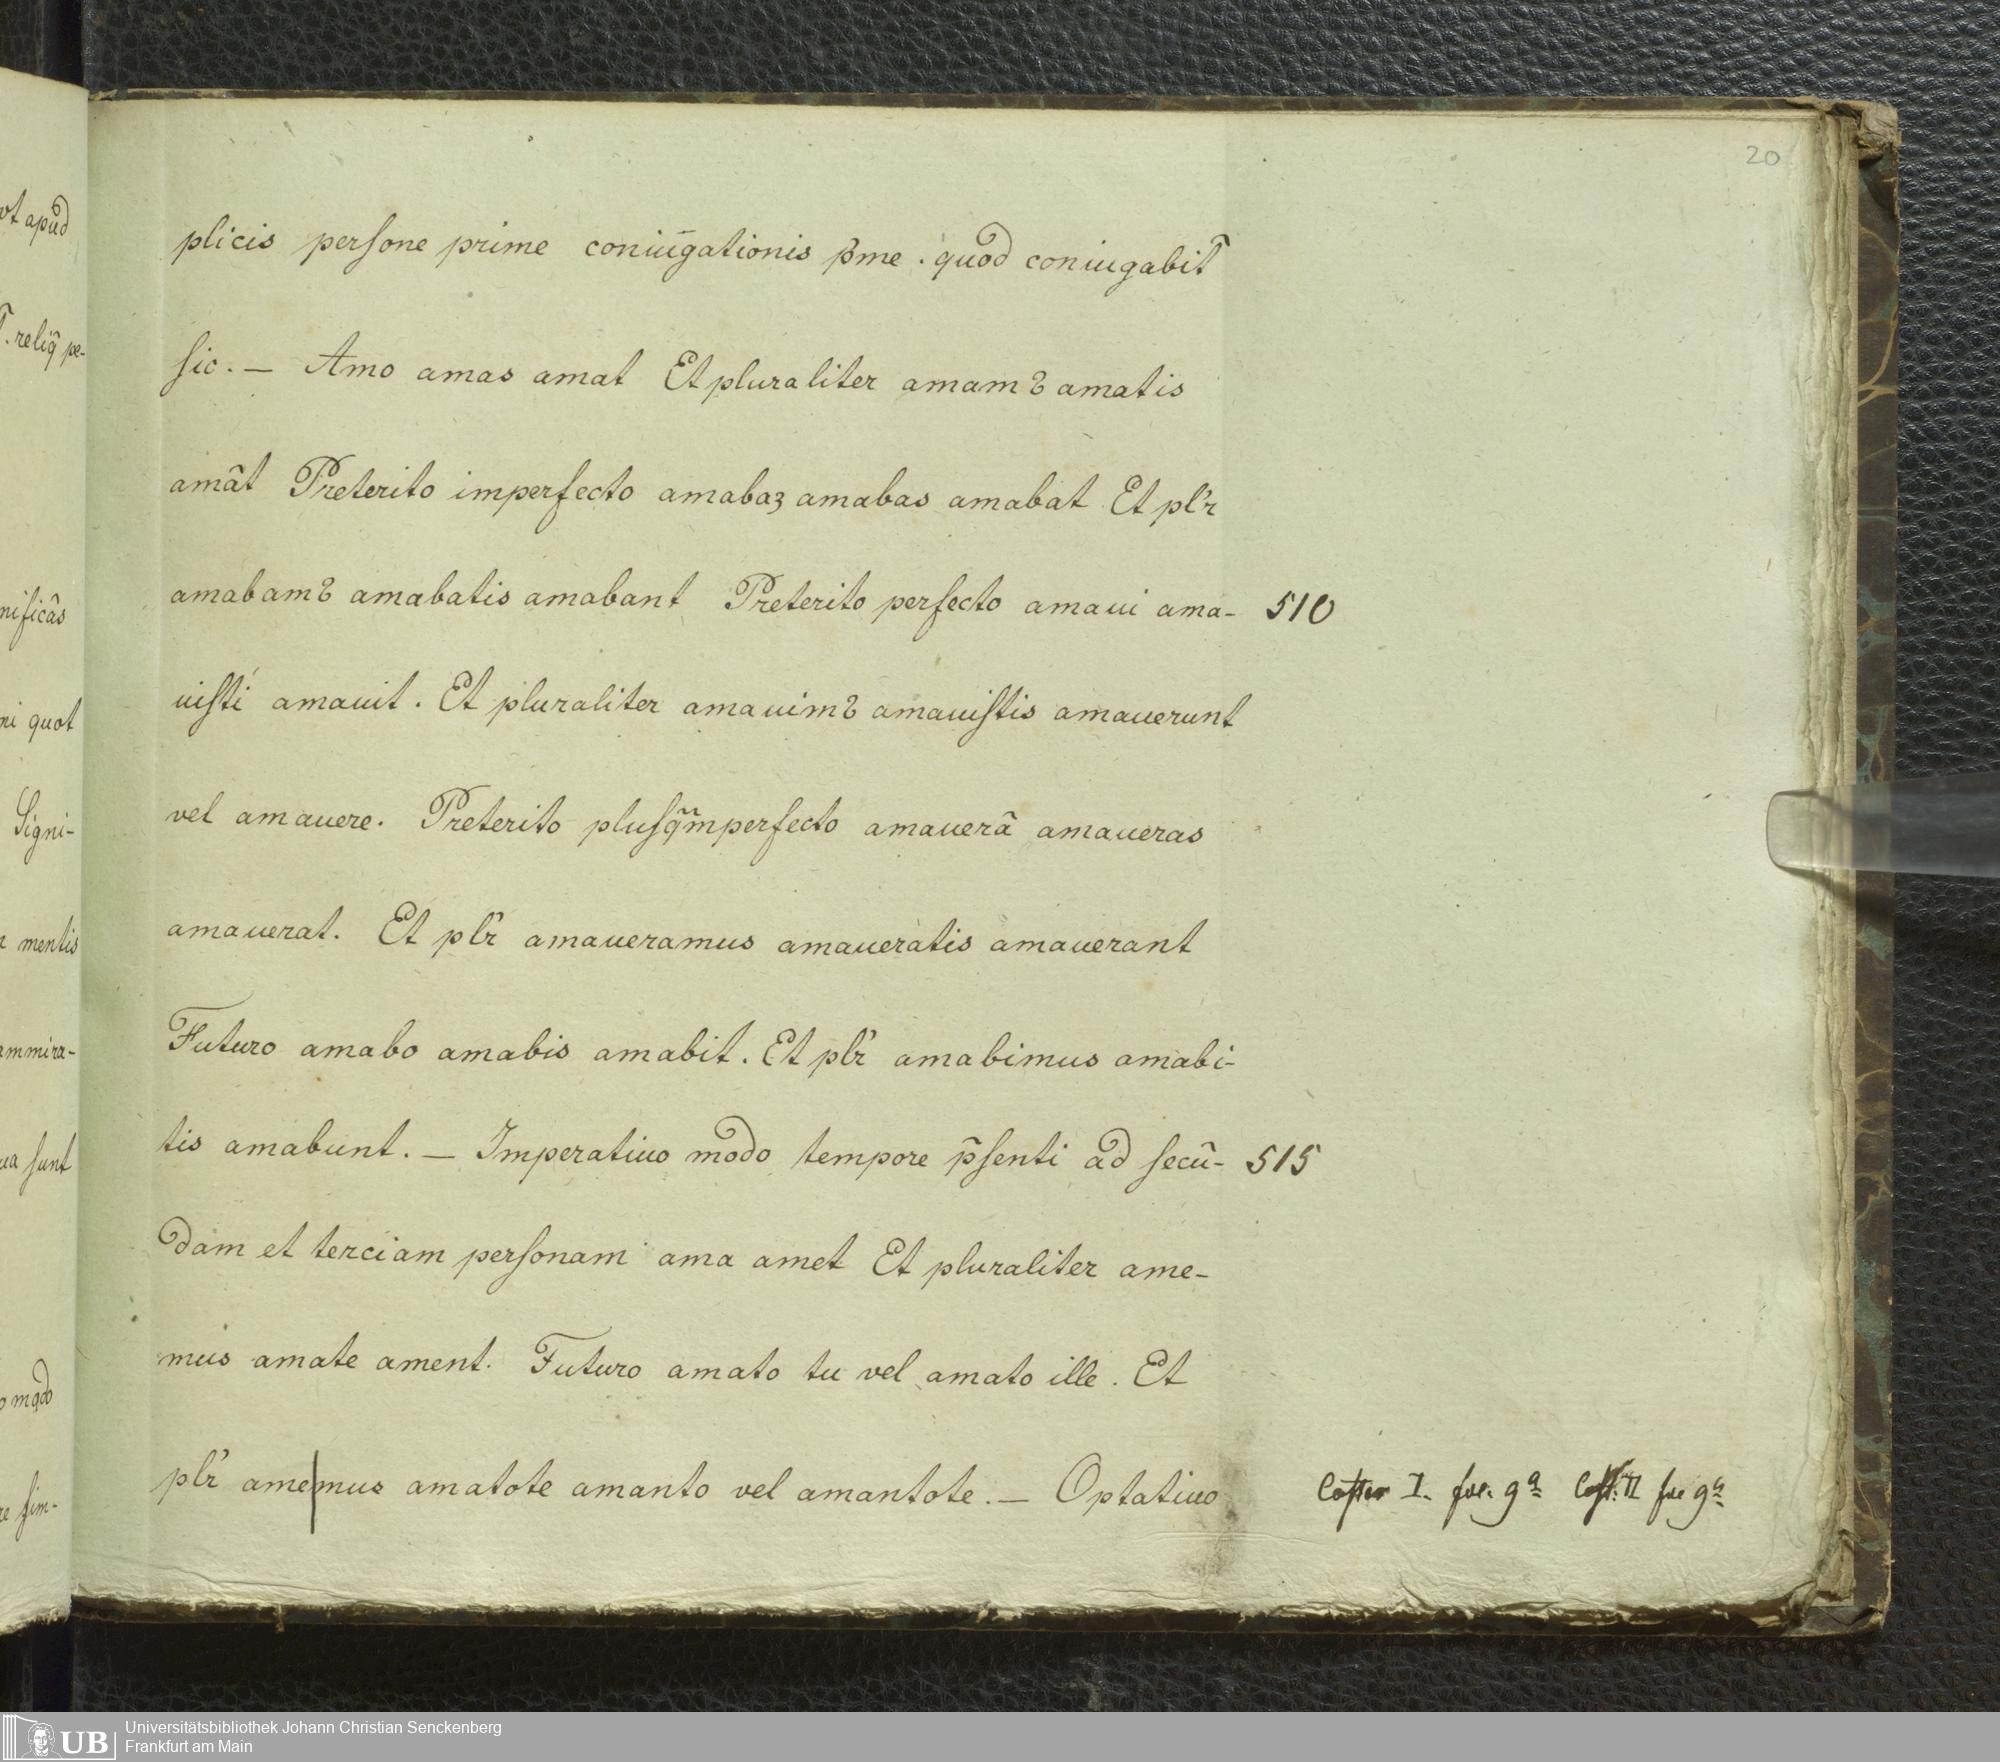 20
ot apud
. reliq̃ pe-
nificãs
ni quot
Signi-
mentis
ammira-
ua sunt
o modo
re sim-
plicis persone prime coniugationis pͥme . quod coniugabit᷑
sic. — Amo amas amat Et pluraliter amamꝰ amatis
amãt Preterito imperfecto amabaꝫ amabas amabat Et pl'r
amabamꝰ amabatis amabant Preterito perfecto amaui ama- 510
uisti amauit . Et pluraliter amauimꝰ amauistis amauerunt
vel amauere. Preterito plusq̃mperfecto amauerã amaueras
amauerat. Et pl'r amaueramus amaueratis amauerant
Futuro amabo amabis amabit. Et pl'r amabimus amabi-
tis amabunt. — Imperatiuo modo tempore p̃senti ad secũ- 515
dam et terciam personam ama amet Et pluraliter ame-
mus amate ament. Futuro amato tu vel amato ille . Et
pl'r ame|mus amatote amanto vel amantote. — Optatiuo Coster I. fol. 9ª Cost. II fol 9ª
UB
Universitätsbibliothek Johann Christian Senckenberg
Frankfurt am Main